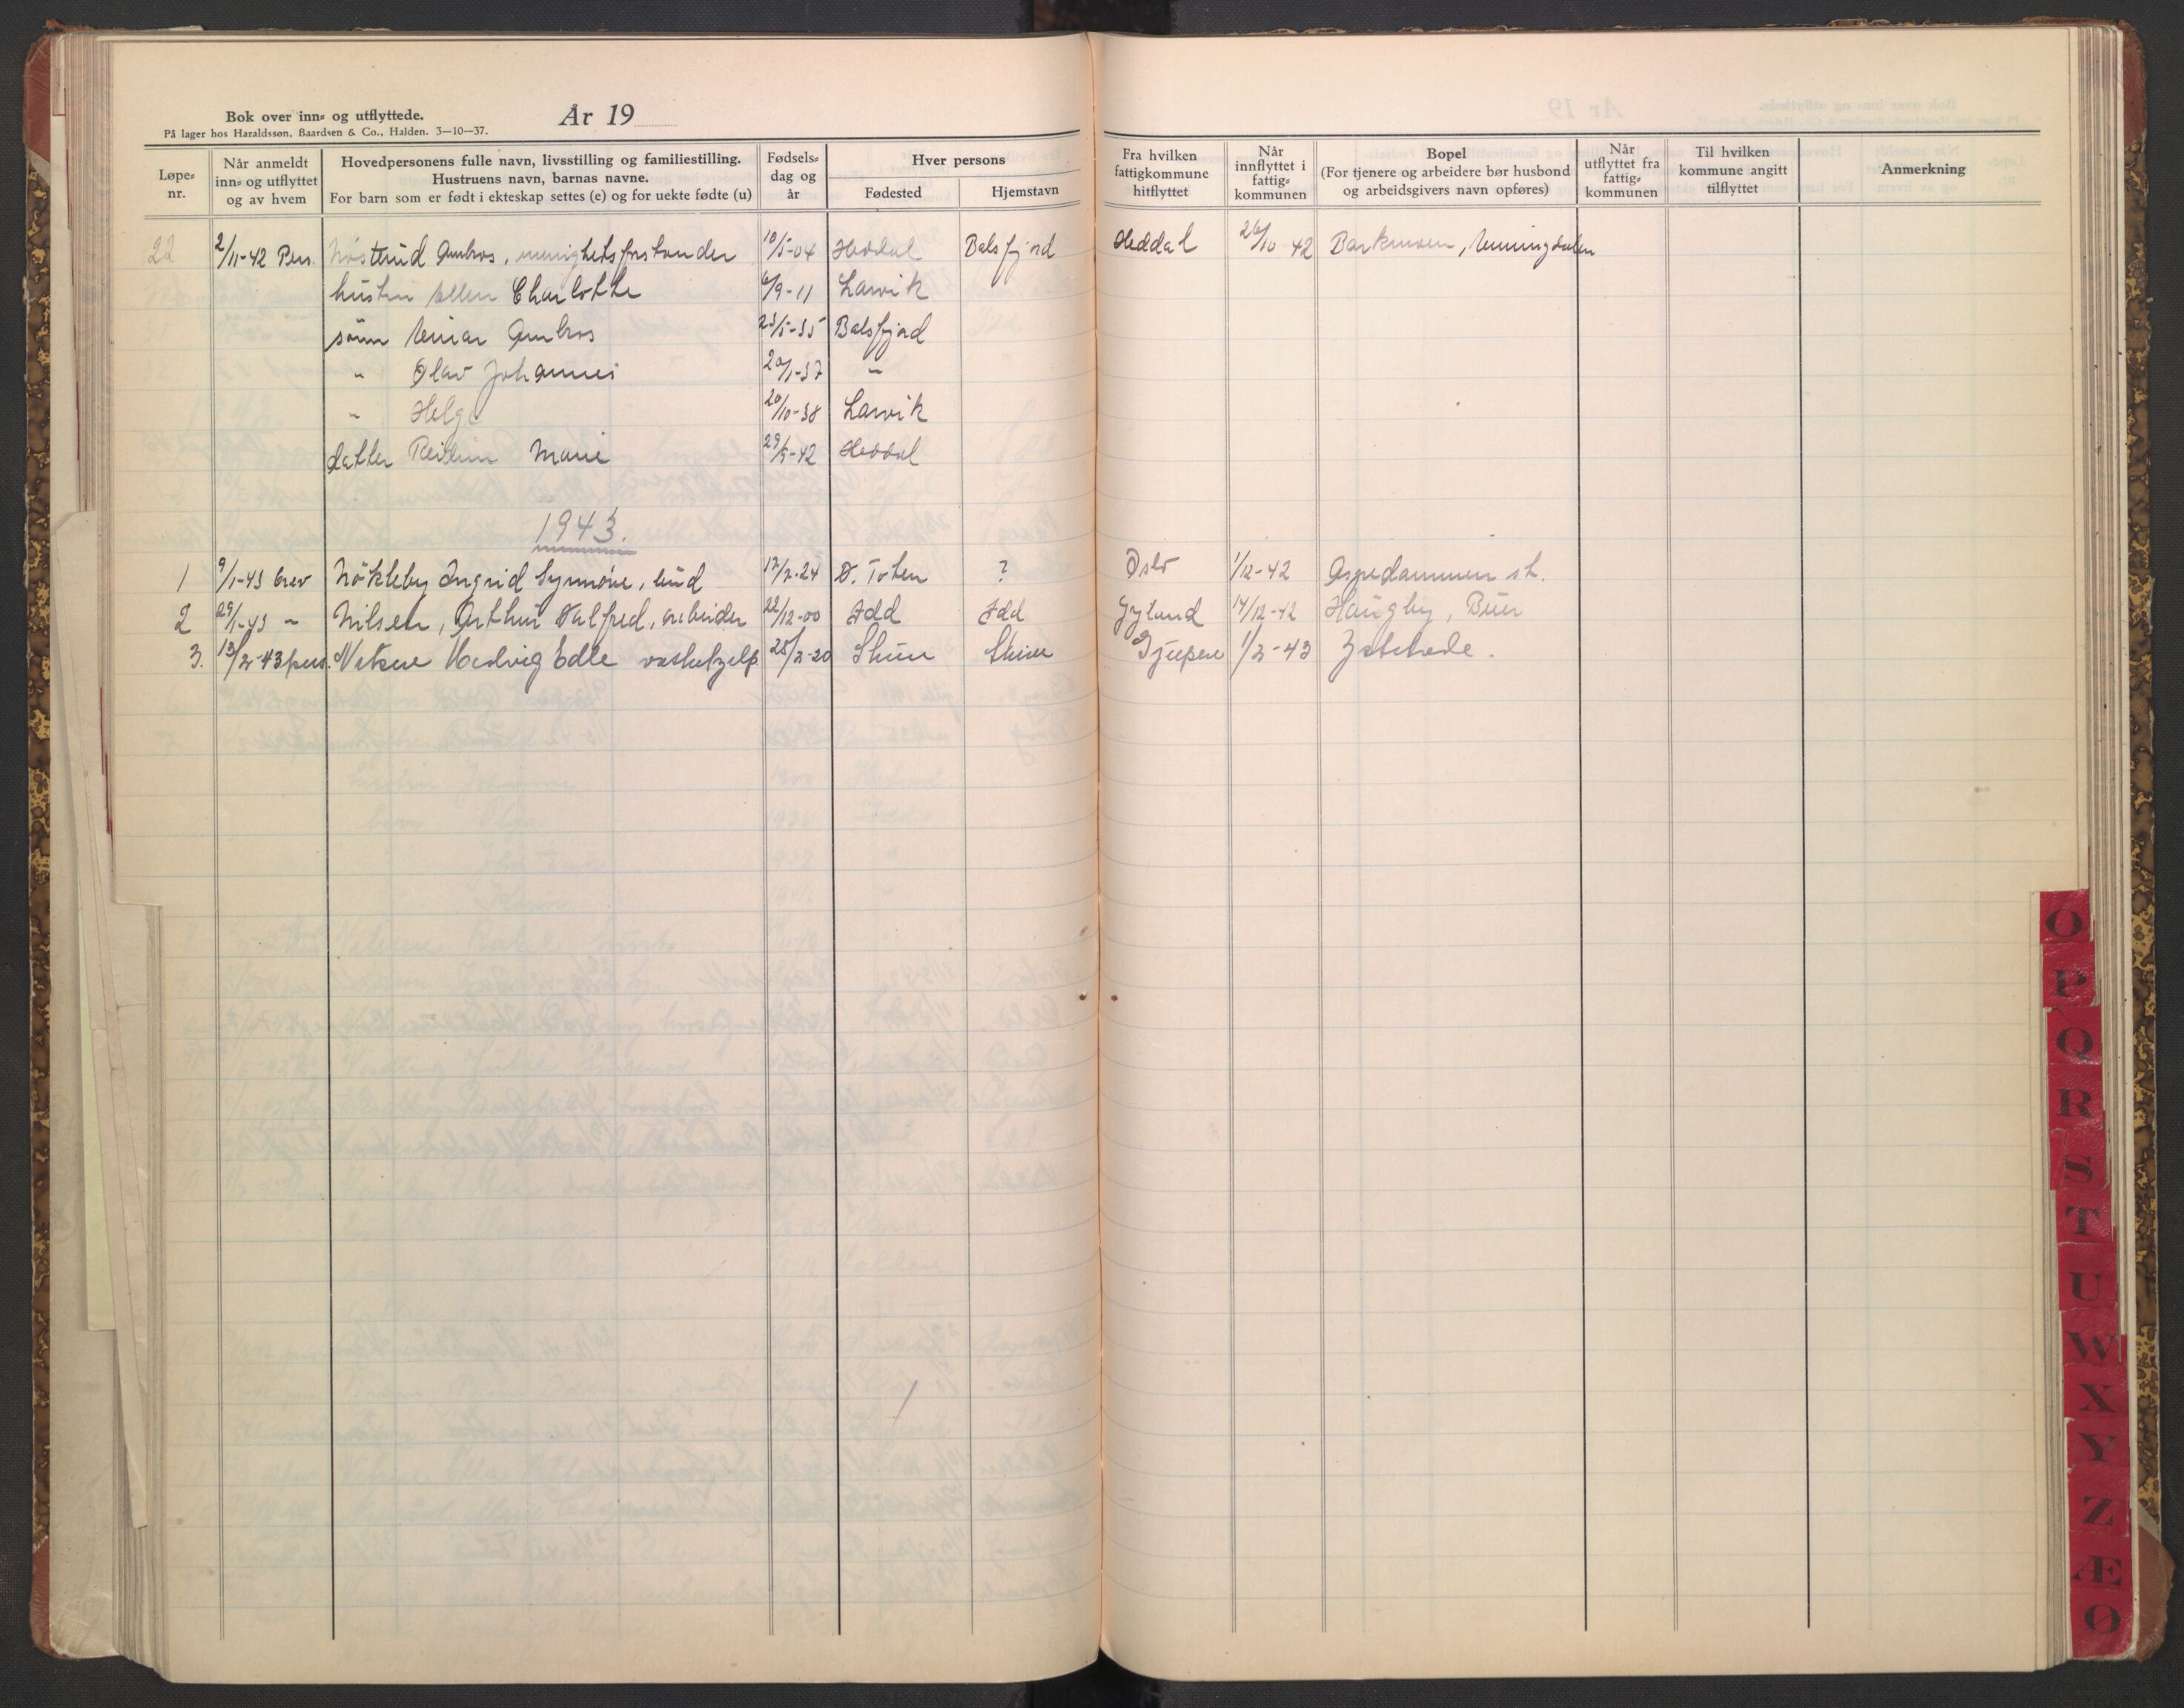 Bok over inn- og utflyttede.
På lager hos Haraldssøn, Baardsen & Co., Halden. 3—10—37.
År 19
Løpe-nr.
Når anmeldt inn- og utflyttet og av hvem
Hovedpersonens fulle navn, livsstilling og familiestilling.
Hustruens navn, barnas navne.
For barn som er født i ekteskap settes (e) og for uekte fødte (u)
Fødsels-dag og år
Hver persons
Fødested
Hjemstavn
Fra hvilken fattigkommune hitflyttet
Når innflyttet i fattig-kommunen
Bopel
(For tjenere og arbeidere bør husbond og arbeidsgivers navn opføres)
Når utflyttet fra fattig-kommunen
Til hvilken kommune angitt tilflyttet
Anmerkning
22 2/11-42 Pers. Ambros, menighetsforstander 10/5-04 Heddal Balsfjord Heddal 26/10 42
hustru Ellen Charlotte 6/9-11 Larvik
sønn Einar Ambros 23/5-35 Balsfjord
" Olav Johannes 20/1-37 "
" Helge 20/10-38 Larvik
datter Reidun Marie 29/9-42 Heddal
1943.
1 9/1-43 brev Nökleby Ingrid Synnöve, bud 17/2-24 Ø. Toten ? Oslo 1/12-42 Aspedammen st.
2 29/1-43 " Nilsen, Arthur Valfred, arbeider 22/12-00 Idd Idd Gyland 14/12-42 Haugby, Buer
3. 13/2-43 pers. Hedvig Edle 25/2-20 1/2-43
O
P
Q
R
S
T
U
W
X
Y
Z
Æ
Ø